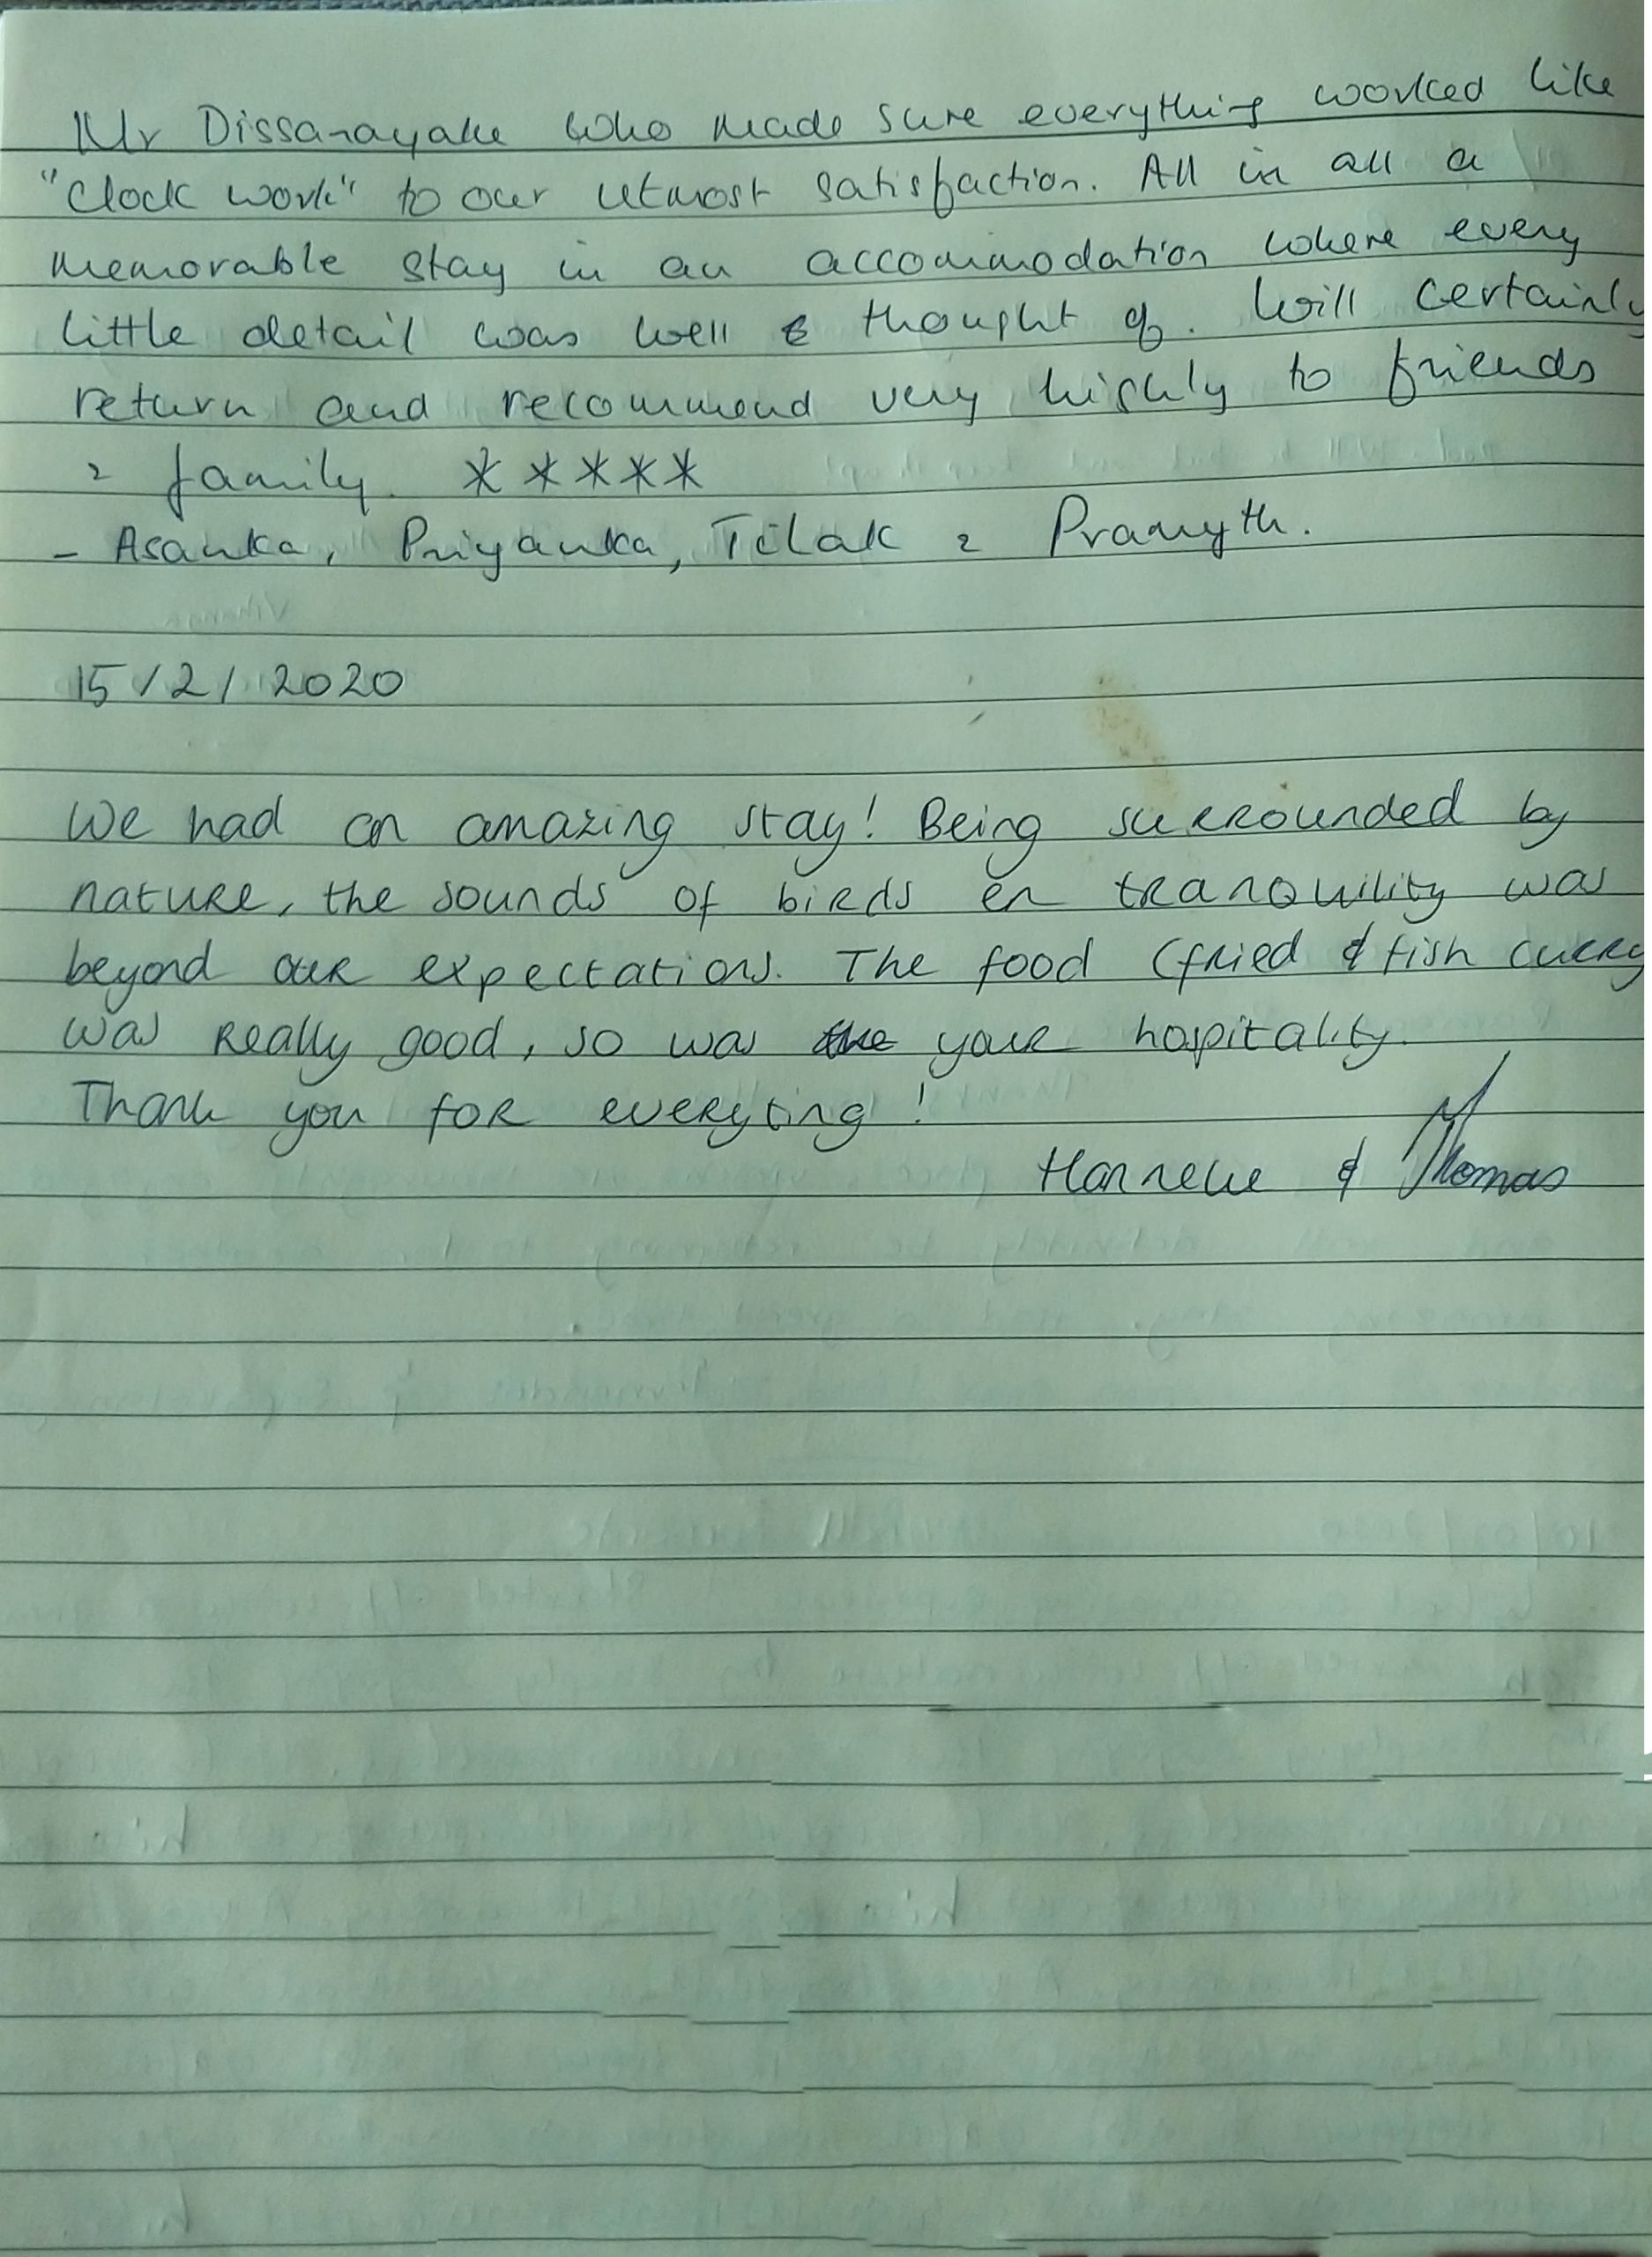 Mr Dissanayake who made sure everything worked like
"Clock work" to our utmost satisfaction. All in all a
memorable stay in an accommodation where every
little detail was well thought of. Will certainly
return and recommend very highly to friends
& family. * * * * *
- Asanka, Priyanka, Tilak & Pramyth.
15/2/2020
We had an amazing stay! Being surrounded by
nature, the sounds of birds en tranquility was
beyond our expectations. The food (fried & fish curry
was really good, so was the your hospitality.
Thank you for everyting!
Hanneke & Thomas